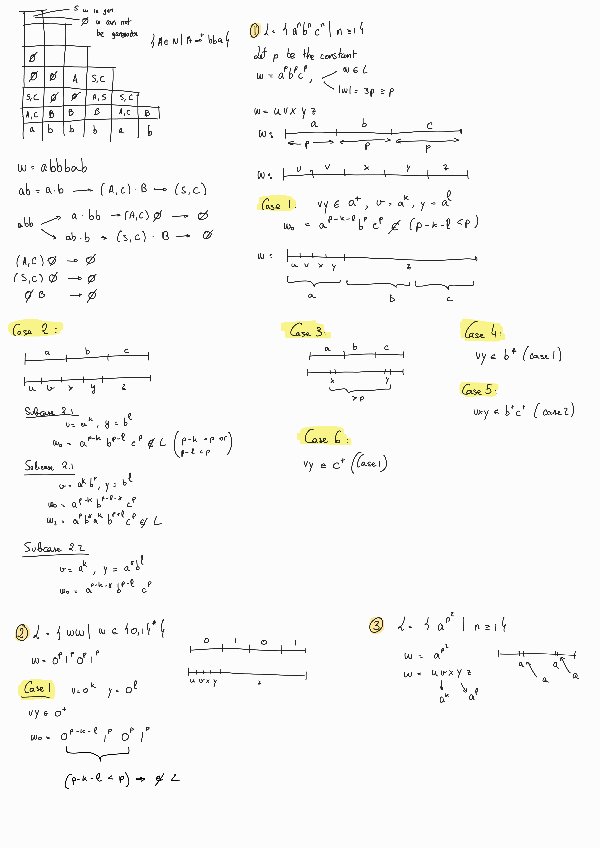 S w is gen
∅ w can not
be generated
{A ∈ N | A ⇒* bba}
∅
∅ ∅ A S,C
S,C ∅ ∅ A,S S,C
A,C B B B A,C B
a b b b a b
w = abbbab
ab = a·b → (A,C)·B → (S,C)
abb
a·bb → (A,C)∅ → ∅
ab·b → (S,C)·B → ∅
(A,C)∅ → ∅
(S,C)∅ → ∅
∅ B → ∅
① L = {aⁿbⁿcⁿ | n ≥ 1}
Let p be the constant
w = aᵖbᵖcᵖ,
w ∈ L
|w| = 3p ≥ p
w = uvxyz
w: a b c
p p p
w: u v x y z
Case 1. vy ∈ a⁺, v = aᵏ, y = aˡ
w₀ = aᵖ⁻ᵏ⁻ˡ bᵖ cᵖ ∉ (p-k-l < p)
w:
u v x y z
a b c
Case 2:
a b c
u v x y z
Subcase 2.1
v = aᵏ, y = bˡ
w₀ = aᵖ⁻ᵏ bᵖ⁻ˡ cᵖ ∉ L (p-k < p or
p-l < p)
Subcase 2.1
v = aᵏbʳ, y = bˡ
w₀ = aᵖ⁻ᵏ bᵖ⁻ˡ⁻ʳ cᵖ
w₂ = aᵖbʳaᵏbᵖ⁺ˡcᵖ ∉ L
Subcase 2.2
v = aᵏ, y = aʳbˡ
w₀ = aᵖ⁻ᵏ⁻ʳ bᵖ⁻ˡ cᵖ
Case 3:
a b c
x y
>p
Case 4:
vy ∈ b⁺ (case 1)
Case 5:
vxy ∈ b⁺c⁺ (case 2)
Case 6:
vy ∈ c⁺ (Case 1)
② L = {ww | w ∈ {0,1}*}
w = 0ᵖ1ᵖ0ᵖ1ᵖ
0 1 0 1
u v x y z
Case 1 v = 0ᵏ y = 0ˡ
vy ∈ 0⁺
w₀ = 0ᵖ⁻ᵏ⁻ˡ 1ᵖ 0ᵖ 1ᵖ
(p-k-l < p) → ∉ L
③ L = {aᵖ² | n ≥ 1}
w = aᵖ²
w = uvxyz
aᵏ aˡ
a a
a a